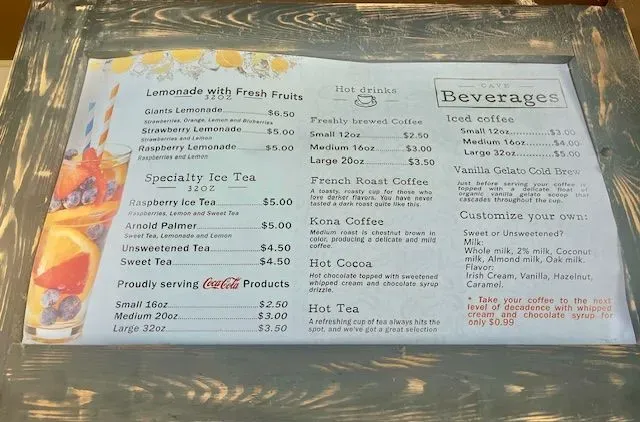 Lemonade with Fresh Fruits
32OZ
Giants Lemonade $6.50
Strawberries, Orange, Lemon and Blueberries
Strawberry Lemonade $5.00
Strawberries and Lemon
Raspberry Lemonade $5.00
Raspberries and Lemon
Specialty Ice Tea
32OZ
Raspberry Ice Tea $5.00
Raspberries, Lemon and Sweet Tea
Arnold Palmer $5.00
Sweet Tea, Lemonade and Lemon
Unsweetened Tea $4.50
Sweet Tea $4.50
Proudly serving Coca-Cola Products
Small 16oz $2.50
Medium 20oz $3.00
Large 32oz $3.50
Hot drinks
Freshly brewed Coffee
Small 12oz $2.50
Medium 16oz $3.00
Large 20oz $3.50
French Roast Coffee
A toasty, roasty cup for those who
love darker flavors. You have never
tasted a dark roast quite like this.
Kona Coffee
Medium roast is chestnut brown in
color, producing a delicate and mild
coffee.
Hot Cocoa
Hot chocolate topped with sweetened
whipped cream and chocolate syrup
drizzle.
Hot Tea
A refreshing cup of tea always hits the
spot, and we've got a great selection
CAFE
Beverages
Iced coffee
Small 12oz $3.00
Medium 16oz $4.00
Large 32oz $5.00
Vanilla Gelato Cold Brew
Just before serving your coffee is
topped with a delicate float of
organic vanilla gelato scoop that
cascades throughout the cup.
Customize your own:
Sweet or Unsweetened?
Milk:
Whole milk, 2% milk, Coconut
milk, Almond milk, Oak milk.
Flavor:
Irish Cream, Vanilla, Hazelnut,
Caramel.
* Take your coffee to the next
level of decadence with whipped
cream and chocolate syrup for
only $0.99